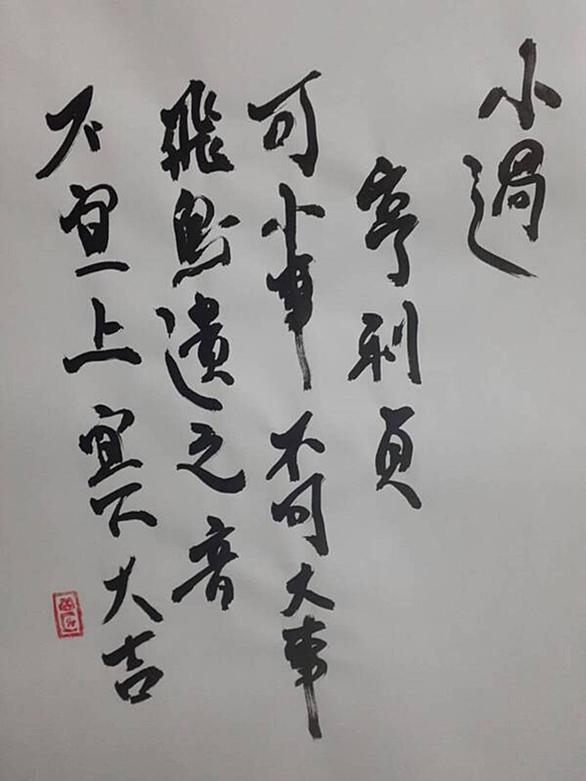 小過
亨利貞
可小事不可大事
飛鳥遺之音
不宜上宜下大吉